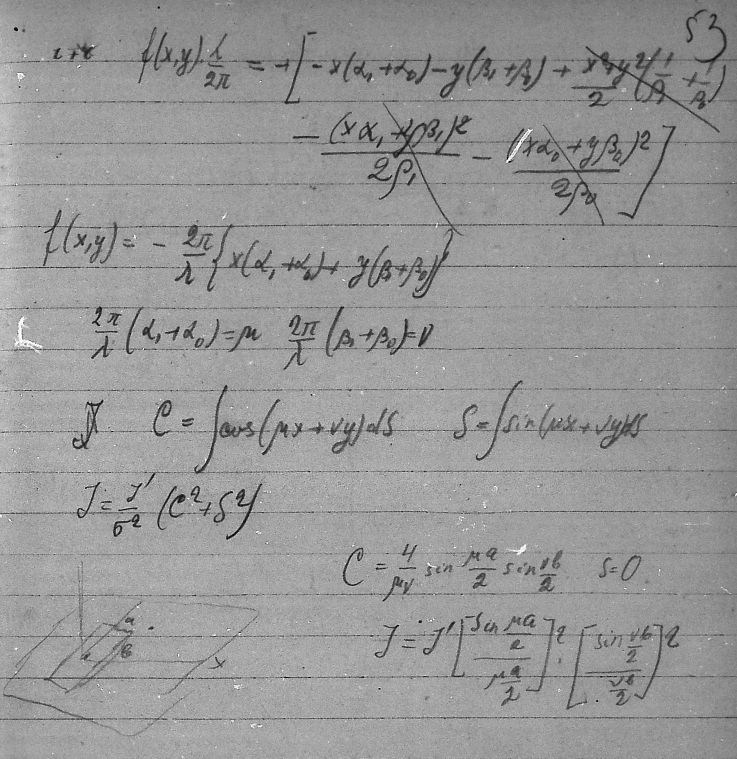 53
f(x,y) λ/2π = +[-x(α₁+α₀) - y(β₁+β₀) + (x²+y²)/2 (1/ρ₁ + 1/ρ₀)
- (xα₁+yβ₁)²/2ρ₁ - (xα₀+yβ₀)²/2ρ₀]
f(x,y) = - 2π/λ {x(α₁+α₀) + y(β₁+β₀)}
2π/λ (α₁+α₀) = μ 2π/λ (β₁+β₀) = ν
C = ∫cos(μx+νy)dS S = ∫sin(μx+νy)dS
J = J'/σ² (C²+S²)
C = 4/μν sin μa/2 sin νb/2 S=0
J = J' [sin μa/2 / μa/2]² · [sin νb/2 / νb/2]²
a
b
x